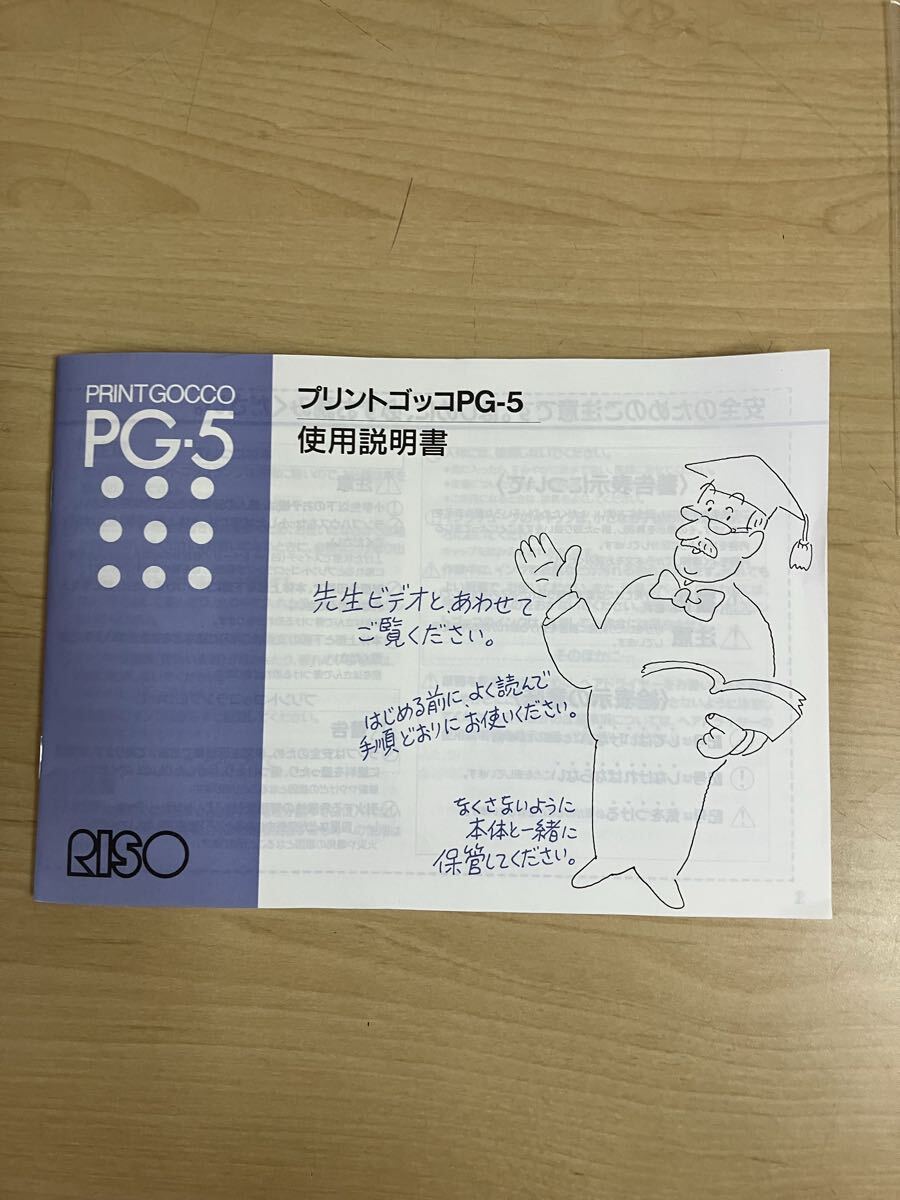 PRINT GOCCO
PG-5
RISO
プリントゴッコPG-5
使用説明書
先生ビデオと、あわせて
ご覧ください。
はじめる前に、よく読んで
手順どおりにお使いください。
なくさないように
本体と一緒に
保管してください。